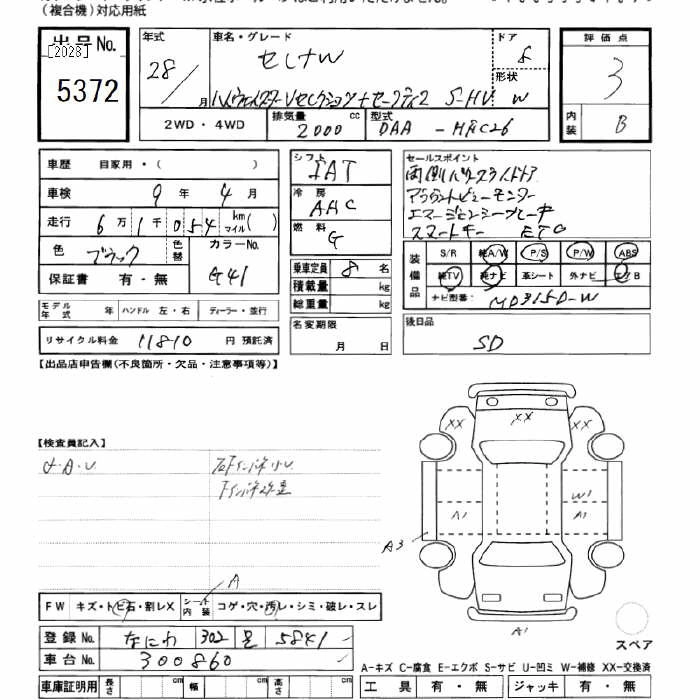 (複合機)対応用紙
出品No.
[2028]
5372
年式 28/ 月
車名・グレード セレナW
ハイウェイスターVセレクション+セーフティ2 S-HV
ドア 8
形状 W
評価点 3
内装 B
2WD・4WD
排気量 2000 cc
型式 DAA - HFC26
車歴 自家用・( )
車検 9年 4月
走行 6万 1千 054 km マイル( )
色 ブラック 色替
カラーNo. G41
保証書 有・無
モデル年式 年 ハンドル 左・右 ディーラー・並行
リサイクル料金 11810 円 預託済
シフト IAT
冷房 AAC
燃料 G
乗車定員 8 名
積載量 kg
総重量 kg
名変期限 月 日
セールスポイント
両側パワースライドドア
アラウンドビューモニター
エマージェンシーブレーキ
スマートキー ETC
装備品
S/R 純A/W P/S P/W ABS
純TV 純ナビ 革シート 外ナビ エアB
ナビ型番: MD315D-W
後日品
SD
【出品店申告欄(不良箇所・欠品・注意事項等)】
【検査員記入】
小・A・U
下インパネ交換
XX
XX
XX
A1
W1
A1
A3
A1
A
FW キズ・トビ石・割レX シート内装 コゲ・穴・汚レ・シミ・破レ・スレ
登録No. なにわ 302 5841
車台No. 300860
車庫証明用 長さ cm 幅 cm 高さ cm
スペア
A-キズ C-腐食 E-エクボ S-サビ U-凹ミ W-補修 XX-交換済
工具 有・無 ジャッキ 有・無